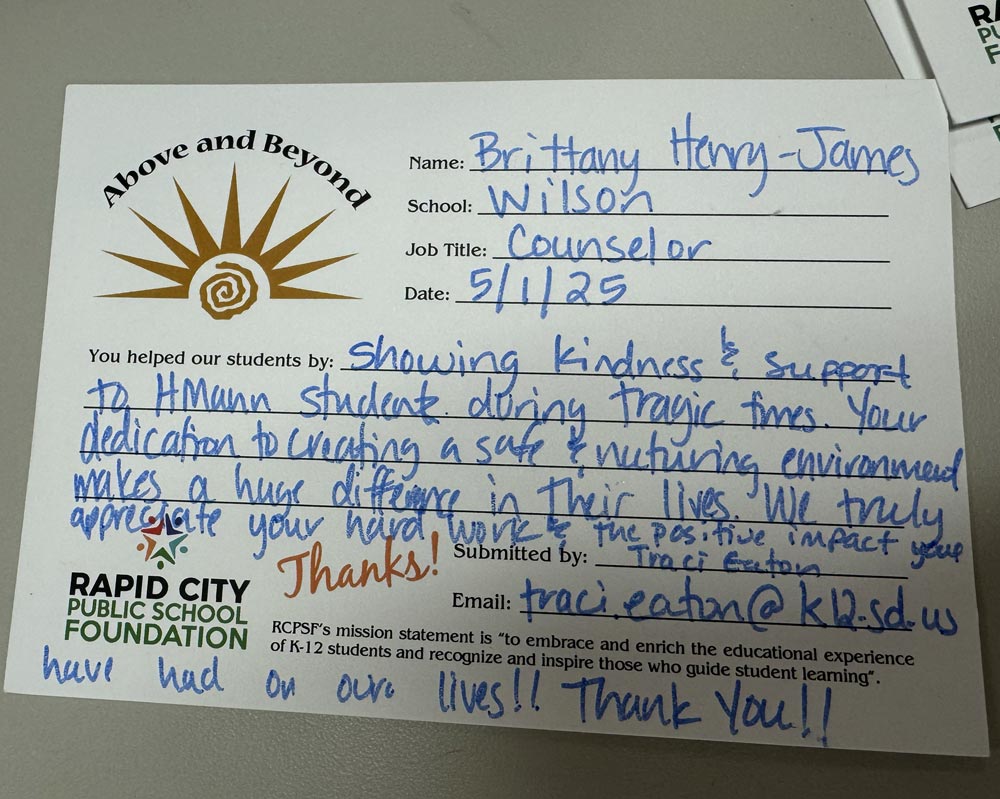 Above and Beyond
Name: Brittany Henry-James
School: Wilson
Job Title: Counselor
Date: 5/1/25
You helped our students by: Showing kindness & support
to HMann students during tragic times. Your
dedication to creating a safe & nuturing environment
makes a huge difference in their lives. We truly
appreciate your hard work & the positive impact you
Submitted by: Traci Eaton
Thanks!
Email: traci.eaton@k12.sd.us
RAPID CITY
PUBLIC SCHOOL
FOUNDATION
RCPSF's mission statement is "to embrace and enrich the educational experience
of K-12 students and recognize and inspire those who guide student learning".
have had on our lives!! Thank You!!
RA
PU
F